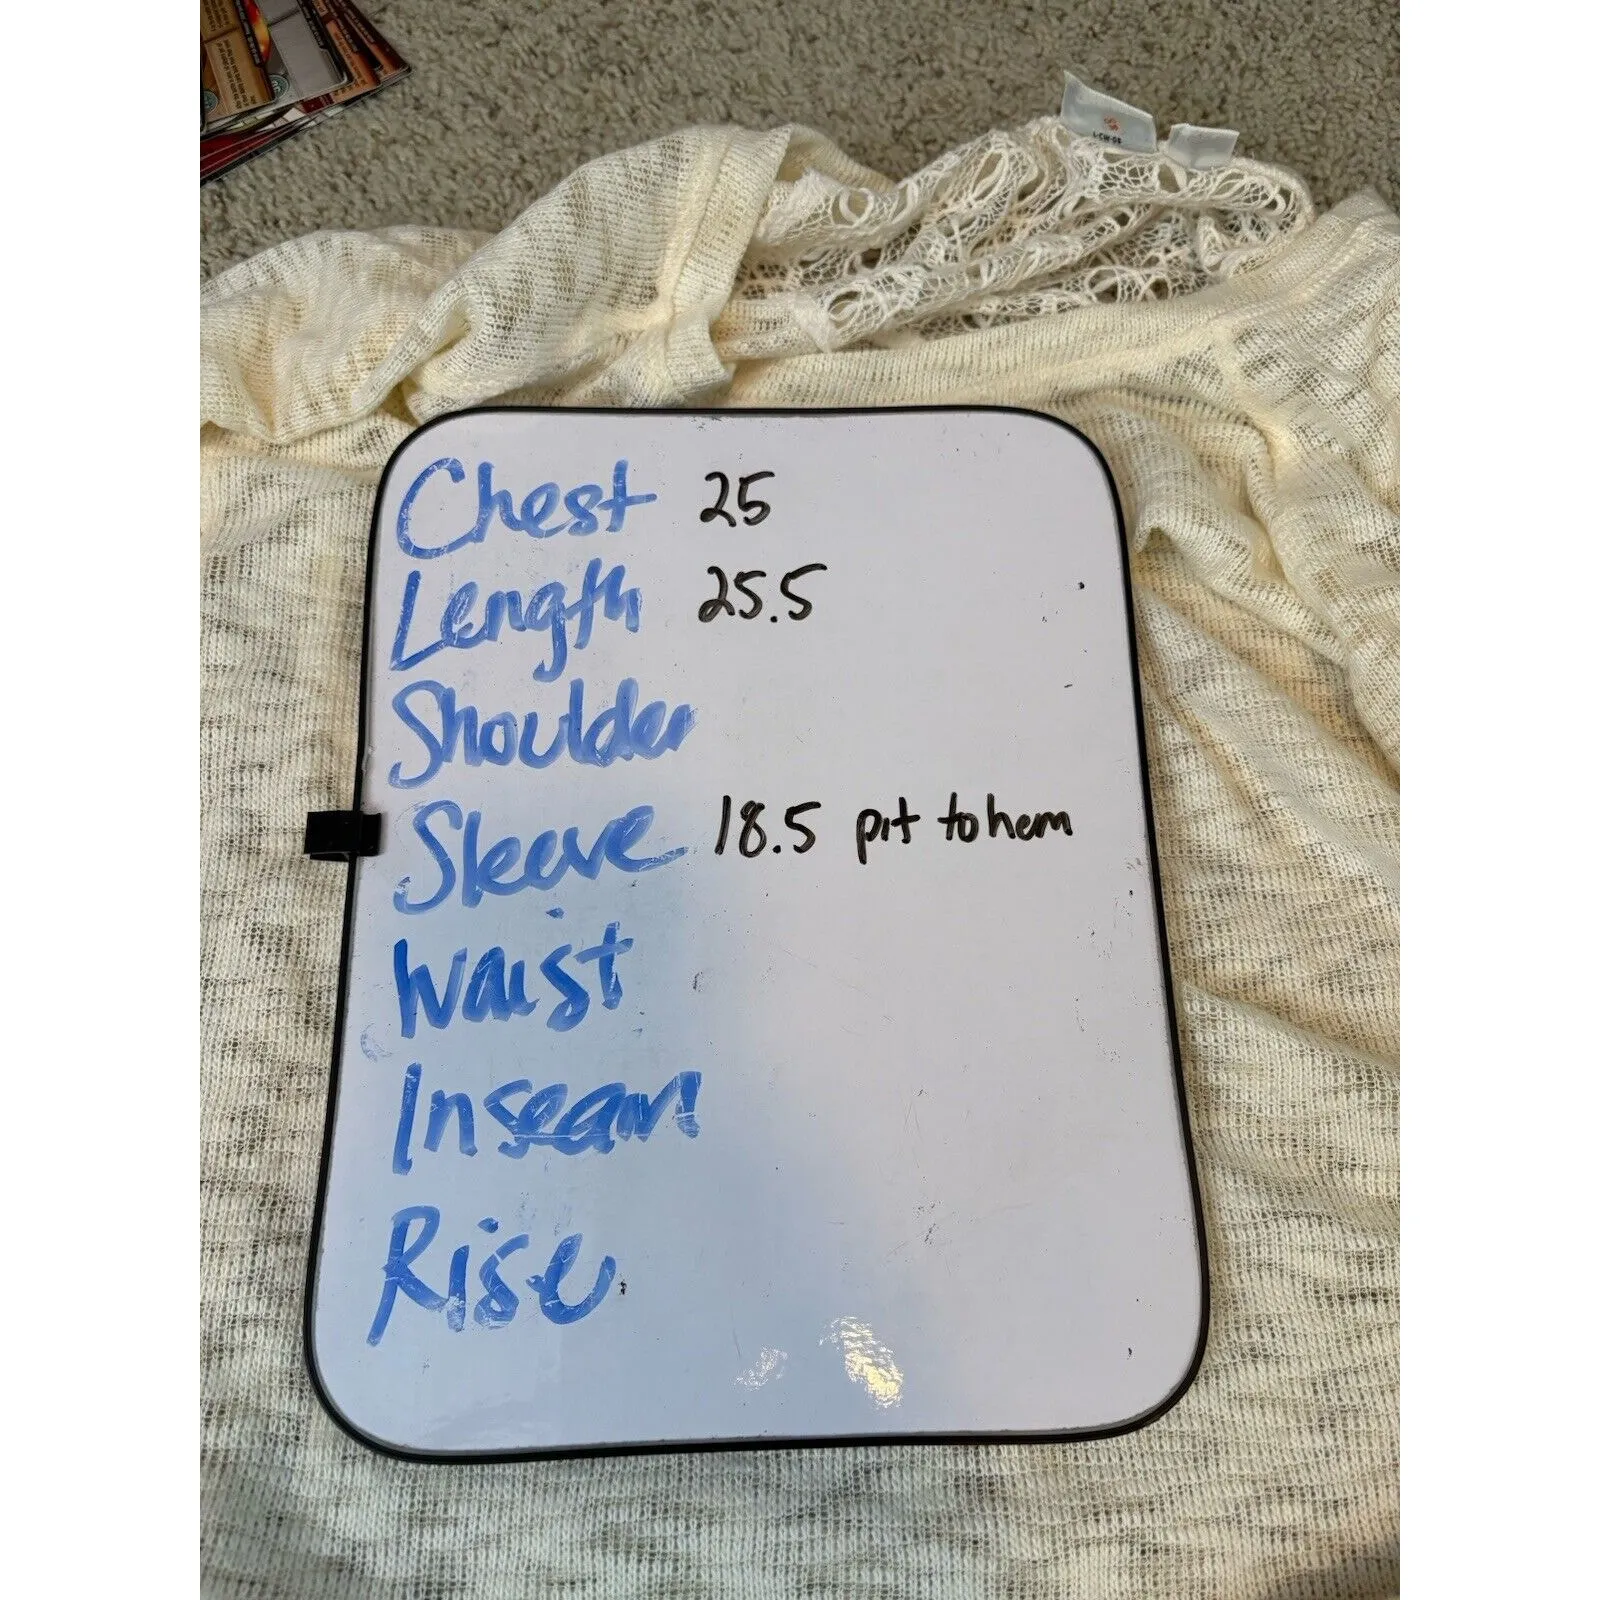 Chest 25
Length 25.5
Shoulder
Sleeve 18.5 pit to hem
Waist
Inseam
Rise